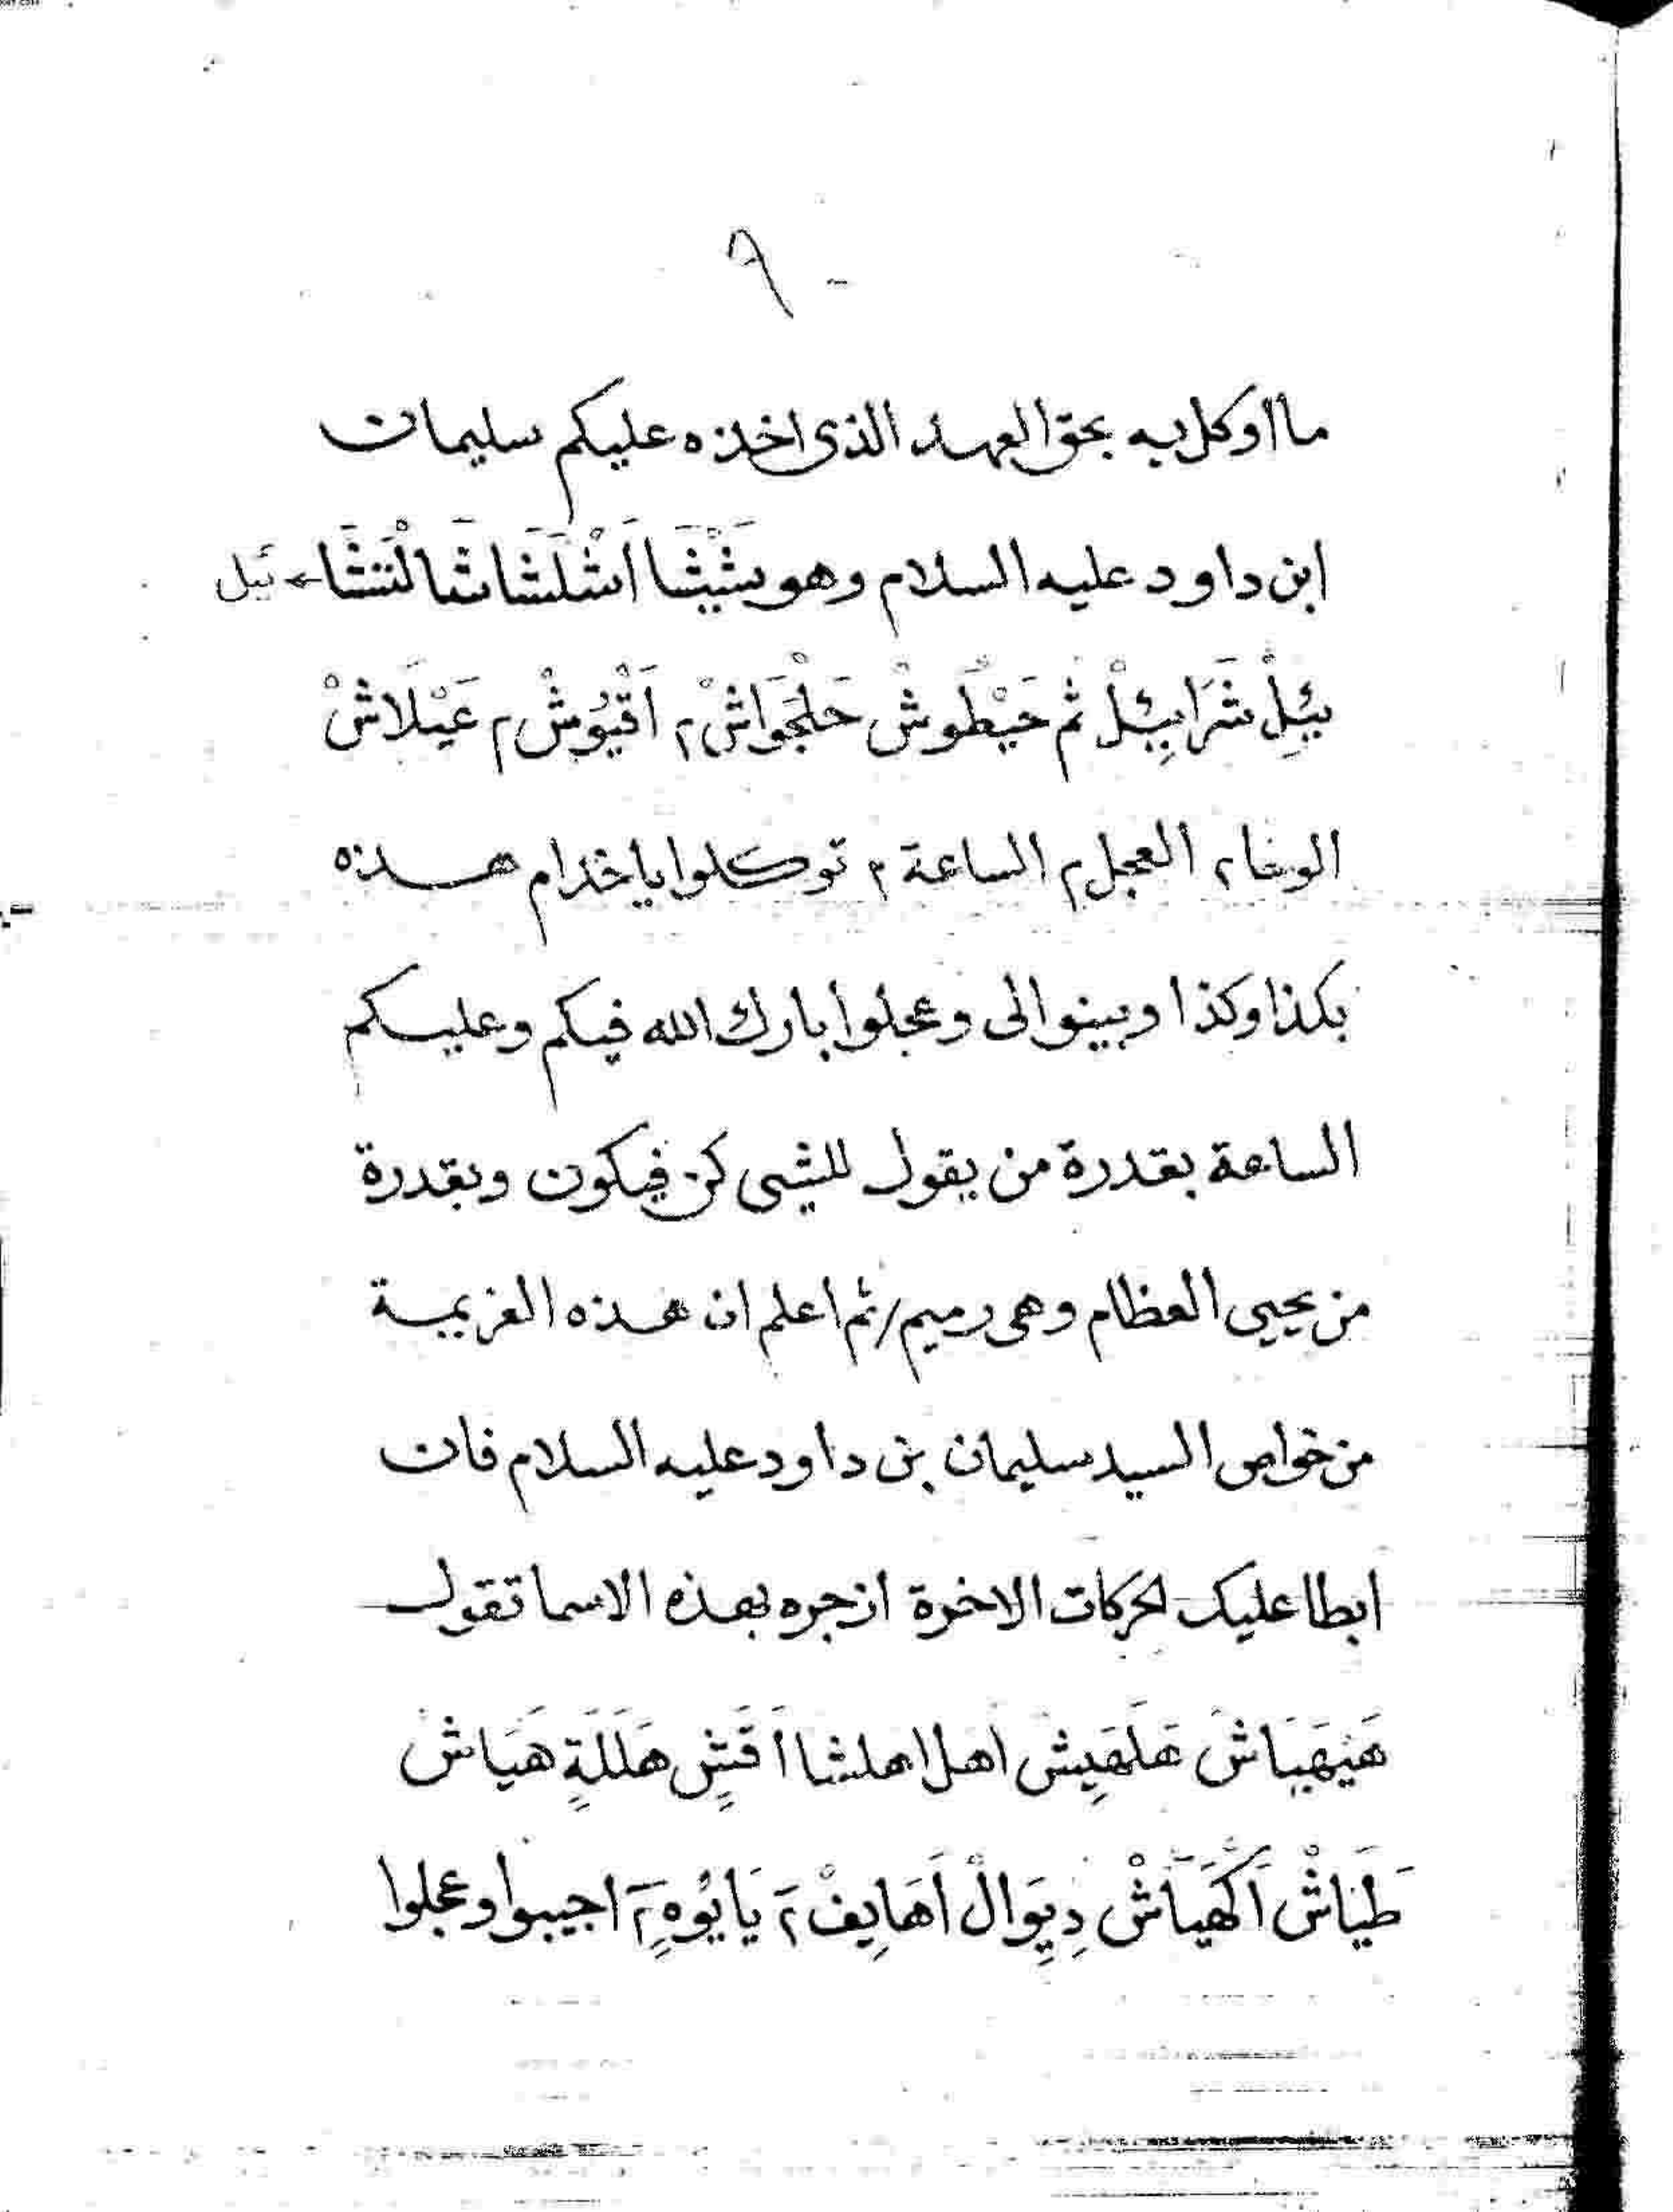 ٩
ما اوكل به بحق العهد الذى اخذه عليكم سليمان
ابن داود عليه السلام وهو
بَئِلْ شَرَابِئِلْ ثم حَيْطُوشْ حَلْجَوَاشْ ٢ اَقْيُوشْ ٢ عَيْلَاشْ
الوحا ٢ العجل ٢ الساعة ٢ توكلوا يا خدام هذه
بكذا وكذا وبينوا لى وعجلوا بارك الله فيكم وعليكم
الساعة بقدرة من يقول للشى كن فيكون وبقدرة
من يحيى العظام وهى رميم / ثم اعلم ان هذه العزيمة
من خواص السيد سليمان بن داود عليه السلام فان
ابطا عليك لحركات الاخرة ازجره بهذه الاسما تقول
هَيَهَبَاشَ هَلَهِيش اهلا هلشا اَقَشٍ هَلَلَةٍ هَيَاش
طَيَاشْ اَكْهَيَاشْ دِيِوَالْ اَهَايِفْ ٢ يَا يُوْهٍ ٢ اجيبوا وعجلوا